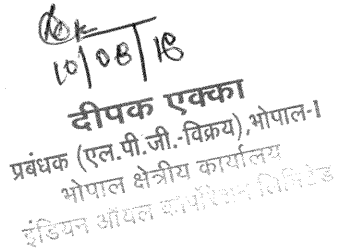 10/08/18
दीपक एक्का
प्रबंधक (एल.पी.जी.-विक्रय), भोपाल-I
भोपाल क्षेत्रीय कार्यालय
इंडियन ऑयल कॉर्पोरेशन लिमिटेड